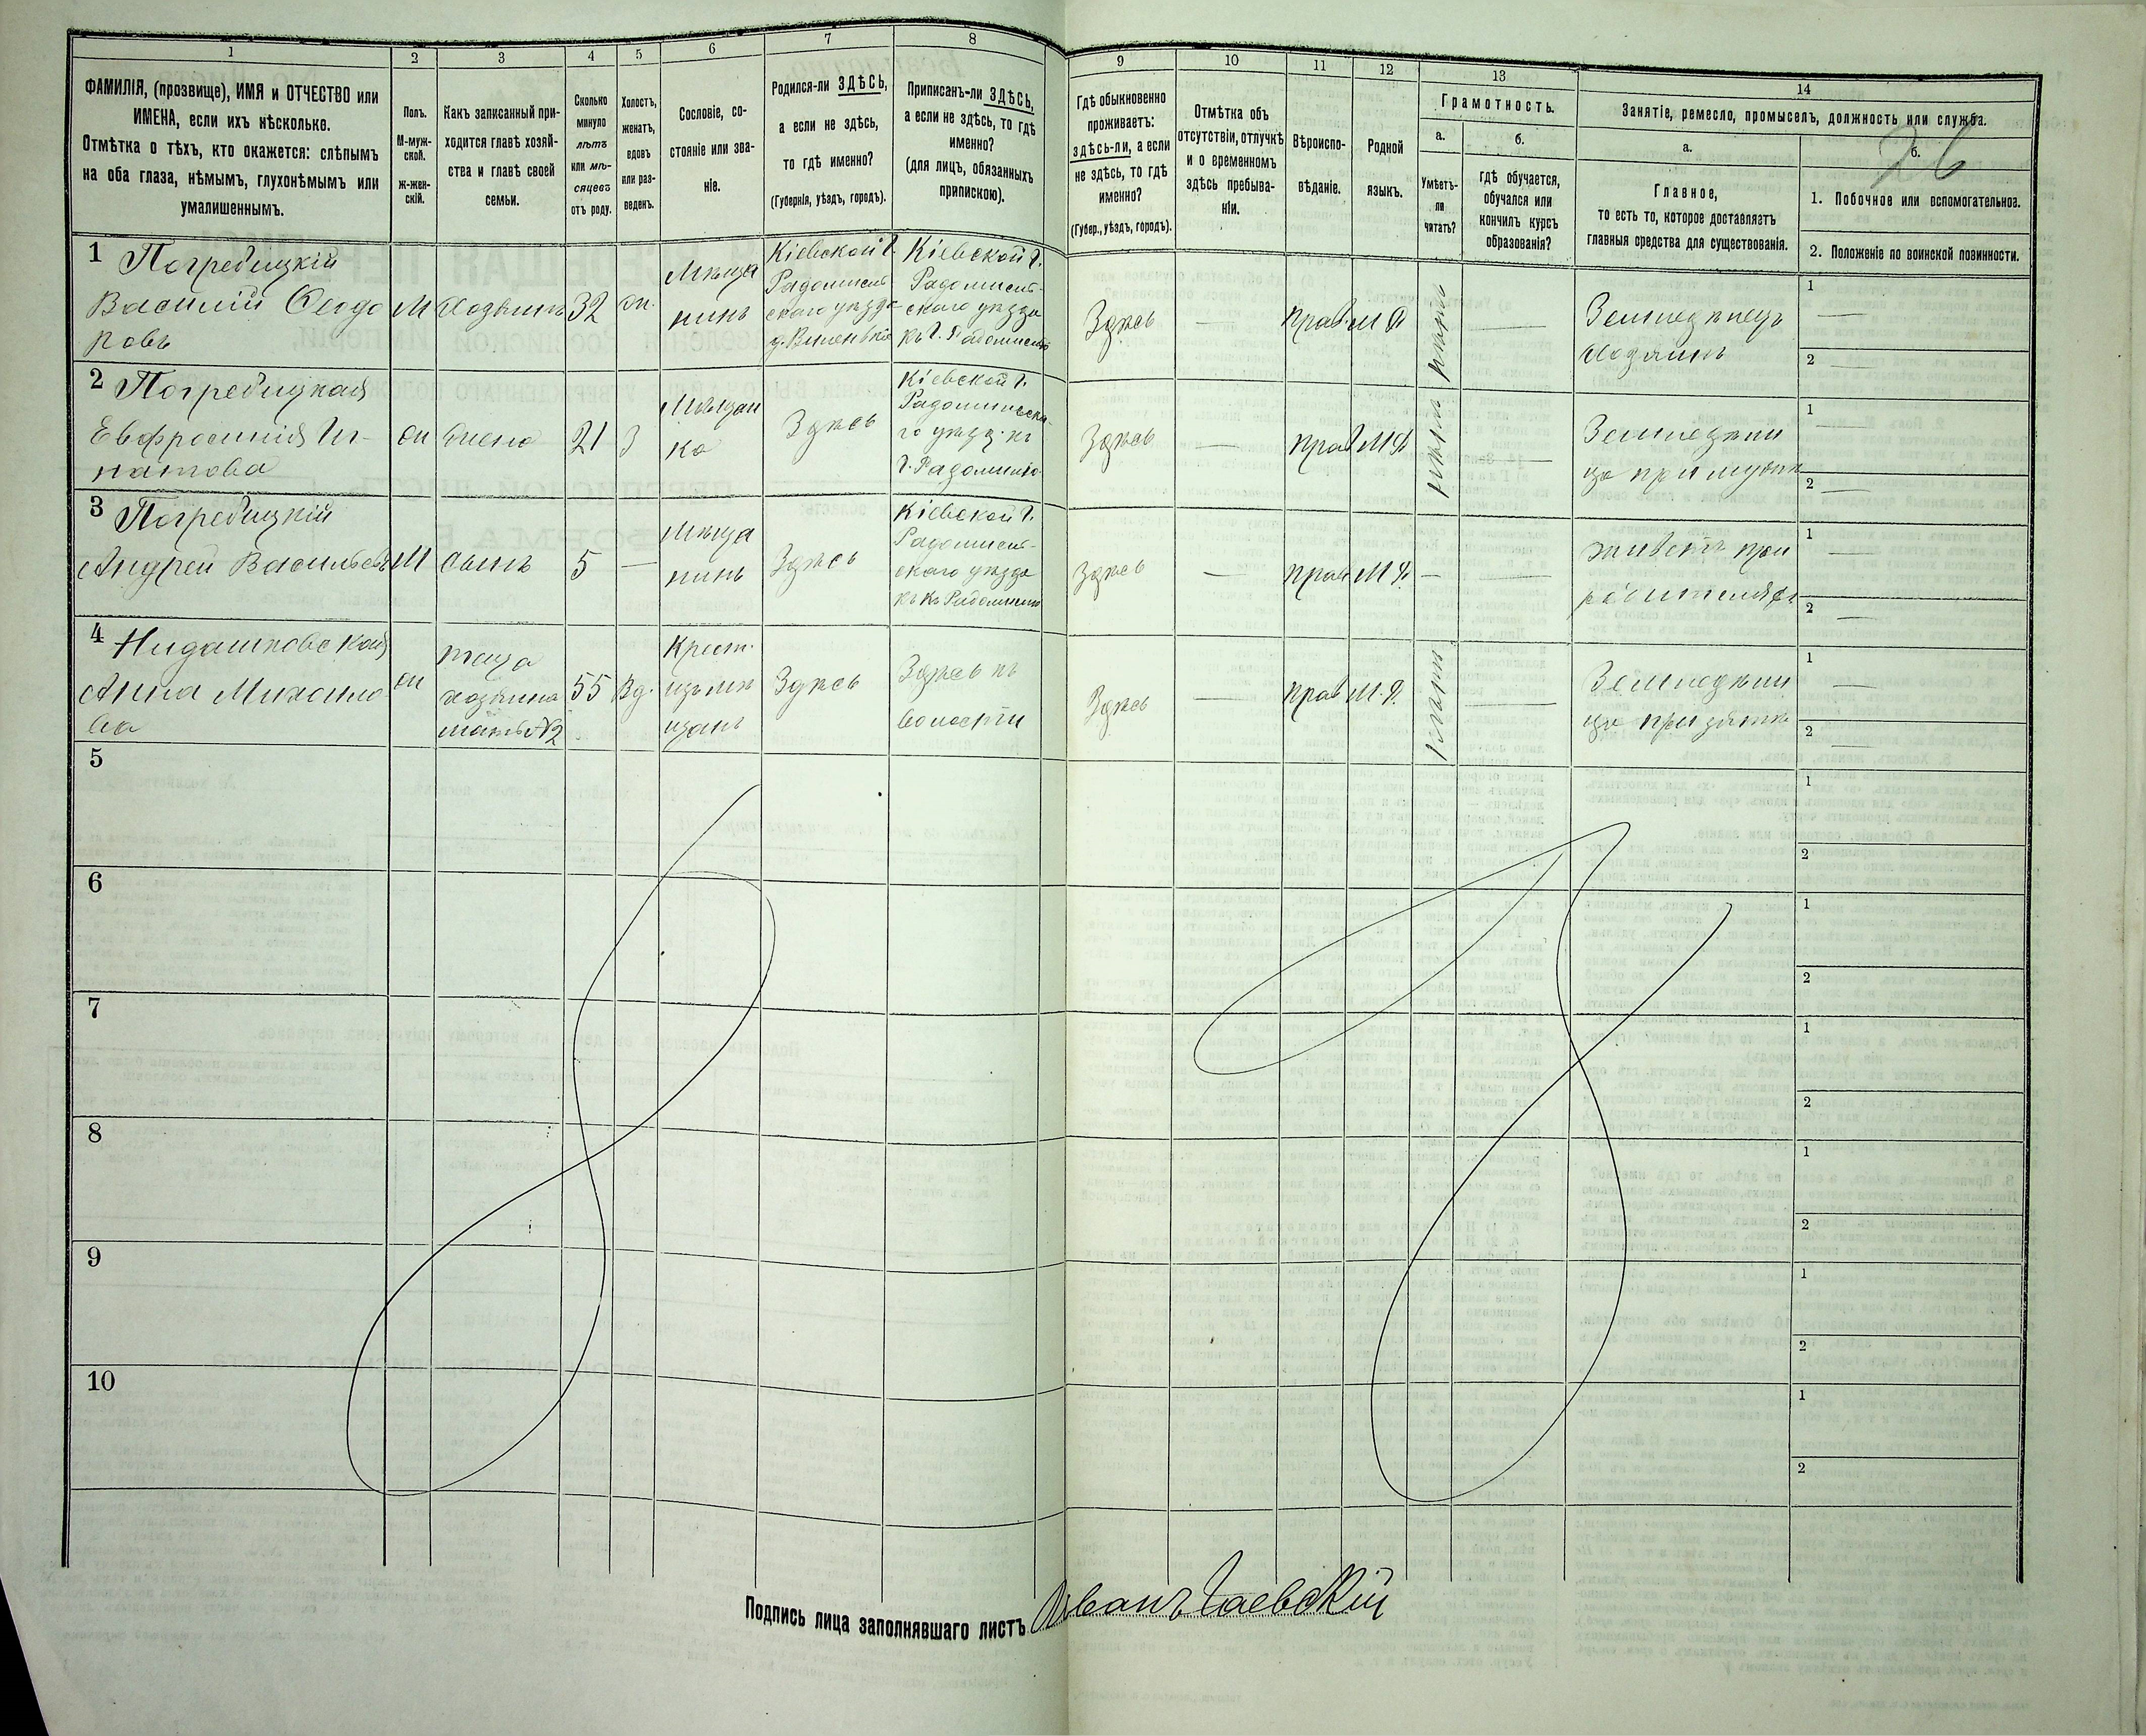 1
2
3
4
5
6
7
8
9
10
11
12
13
14
ФАМИЛІЯ, (прозвище), ИМЯ и ОТЧЕСТВО или
ИМЕНА, если ихъ нѣсколько.
Отмѣтка о тѣхъ, кто окажется: слѣпымъ
на оба глаза, нѣмымъ, глухонѣмымъ или
умалишеннымъ.
Полъ.
М-муж-
ской.
ж-жен-
скій.
Какъ записанный при-
ходится главѣ хозяй-
ства и главѣ своей
семьи.
Сколько
минуло
лѣтъ
или мѣ-
сяцевъ
отъ роду.
Холостъ,
женатъ,
вдовъ
или раз-
веденъ.
Сословіе, со-
стояніе или зва-
ніе.
Родился-ли ЗДѢСЬ,
а если не здѣсь,
то гдѣ именно?
(Губернія, уѣздъ, городъ).
Приписанъ-ли ЗДѢСЬ,
а если не здѣсь, то гдѣ
именно?
(для лицъ, обязанныхъ
припискою).
Гдѣ обыкновенно
проживаетъ:
здѣсь-ли, а если
не здѣсь, то гдѣ
именно?
(Губер., уѣздъ, городъ).
Отмѣтка объ
отсутствіи, отлучкѣ
и о временномъ
здѣсь пребыва-
ніи.
Вѣроиспо-
вѣданіе.
Родной
языкъ.
Грамотность.
а.
Умѣетъ-
ли
читать?
б.
гдѣ обучается,
обучался или
кончилъ курсъ
образованія?
Занятіе, ремесло, промыселъ, должность или служба.
а.
Главное,
то есть то, которое доставляетъ
главныя средства для существованія.
б.
26
1. Побочное или вспомогательное.
2. Положеніе по воинской повинности.
1 Погребицкій
Василій Ѳеодо
ровъ
М
хозяинъ
32
жн.
Мѣща
нинъ
Кіевской г.
Радомысль
скаго уѣзда
Кіевской г.
Радомысль-
скаго уѣзда
къ г. Радомыслю
Здѣсь
—
прав.
М Р
нѣтъ
—
Земледѣлецъ
хозяинъ
1 —
2 —
2 Погребицкая
Евфросинія Иг-
натова
ж
жена
21
З
Мѣщан
ка
Здѣсь
Кіевской г.
Радомысльска-
го уѣзд. къ
г. Радомыслю
Здѣсь
—
прав
М Р
нѣтъ
—
Земледѣли
ца при мужѣ
1 —
2 —
3 Погребицкій
Андрей Васильевъ
М
сынъ
5
—
Мѣща
нинъ
Здѣсь
Кіевской г.
Радомысль-
скаго уѣзда
Здѣсь
—
прав
М Р.
—
—
живетъ при
родителяхъ
1 —
2 —
4 Нидашковская
Анна Михайло
ва
ж
теща
хозяина
мать №2
55
Вд.
Крест.
изъ мѣ
щанъ
Здѣсь
Здѣсь къ
волости
Здѣсь
—
прав
М. Р.
нѣтъ
—
Земледѣли
ца при зятѣ
1 —
2 —
5
1
2
6
1
2
7
1
2
8
1
2
9
1
2
10
1
2
Подпись лица заполнявшаго листъ Иванъ Гаевскій